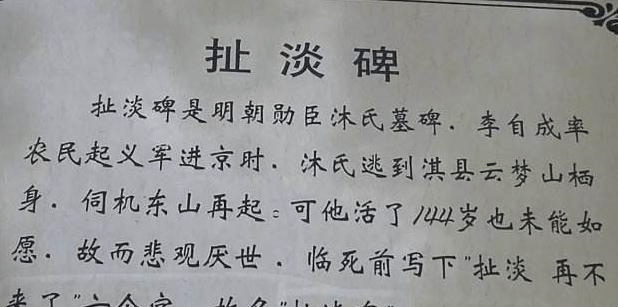 扯淡碑
扯淡碑是明朝勋臣沐氏墓碑.李自成率
农民起义军进京时.沐氏逃到淇县云梦山栖
身.伺机东山再起:可他活了144岁也未能如
愿.故而悲观厌世.临死前写下"扯淡 再不
来了"六个字